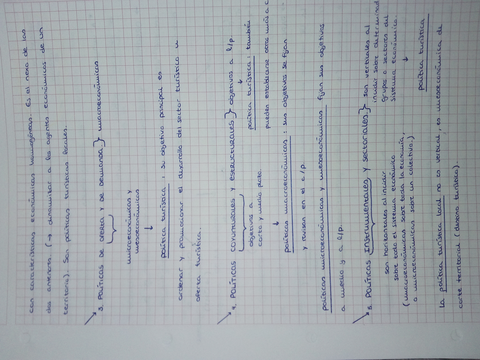 con características económicas homogéneas. Es el nexo de los
dos anteriores (→ aproximar a los agentes económicos de un
territorio). Son políticas turísticas locales.
3. POLÍTICAS DE OFERTA Y DE DEMANDA } macroeconómicas
macroeconómicas y
microeconómicas
↓
política turística: su objetivo principal es
ordenar y promocionar el desarrollo del sector turístico u
oferta turística.
4. POLÍTICAS COYUNTURALES Y ESTRUCTURALES } objetivos a l/p
objetivos a
corto y medio plazo
↓
política turística: también
pueden establecerse como
↓
políticas macroeconómicas: sus objetivos se fijan
y miden en el c/p
políticas microeconómicas y mesoeconómicas fijan sus objetivos
a medio y a l/p.
5. POLÍTICAS INSTRUMENTALES Y SECTORIALES } son verticales al
incidir sobre determinado
grupo o sectores del
sistema económico.
↓
política turística
son horizontales al incidir
sobre todo el sistema económico
(macroeconómicas sobre toda la economía,
o microeconómicas sobre un colectivo.)
La política turística local no es vertical, es mesoeconómica de
corte territorial (destino turístico)